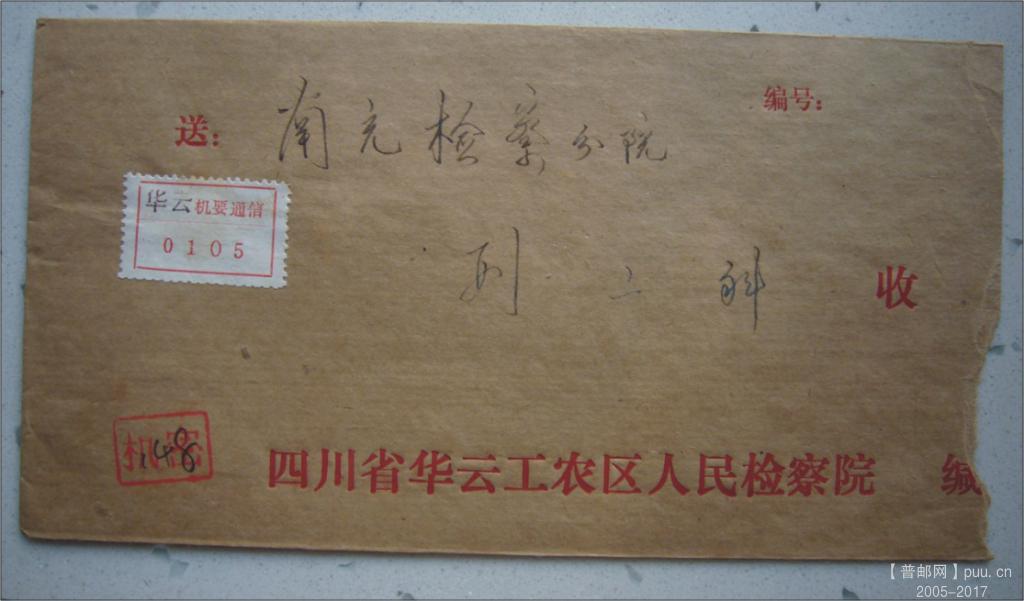 编号：
送：南充检察分院
华云机要通信
0105
刑二科 收
机密
148
四川省华云工农区人民检察院 缄
【普邮网】puu.cn
2005-2017